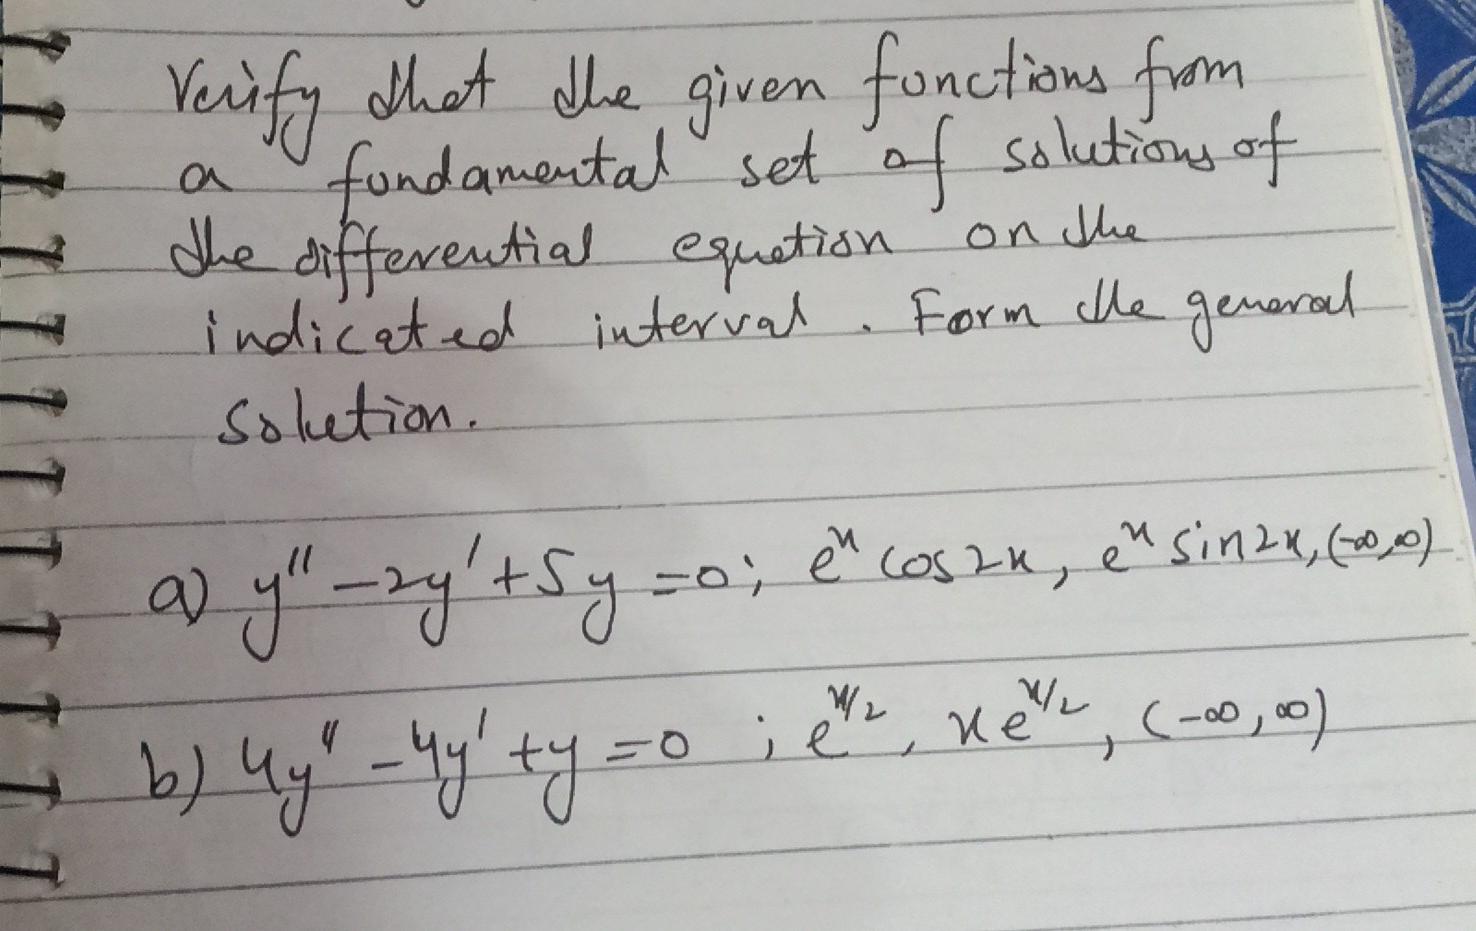 Verify that the given functions from
a fundamental set of solutions of
the differential equation on the
indicated interval. Form the general
solution.
a) y'' - 2y' + 5y = 0; eˣ cos2x, eˣ sin2x, (-∞,∞)
b) 4y'' - 4y' + y = 0 ; e^{x/2}, xe^{x/2}, (-∞,∞)